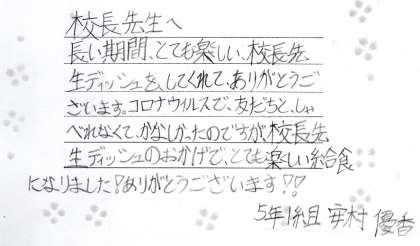 校長先生へ
長い期間、とても楽しい、校長先
生ディッシュを、してくれて、ありがとうご
ざいます。コロナウイルスで、友だちと、しゃ
べれなくて、かなしかったのですが、校長先
生ディッシュのおかげで、とても楽しい給食
になりました!ありがとうございます!!
5年1組 安村 優香